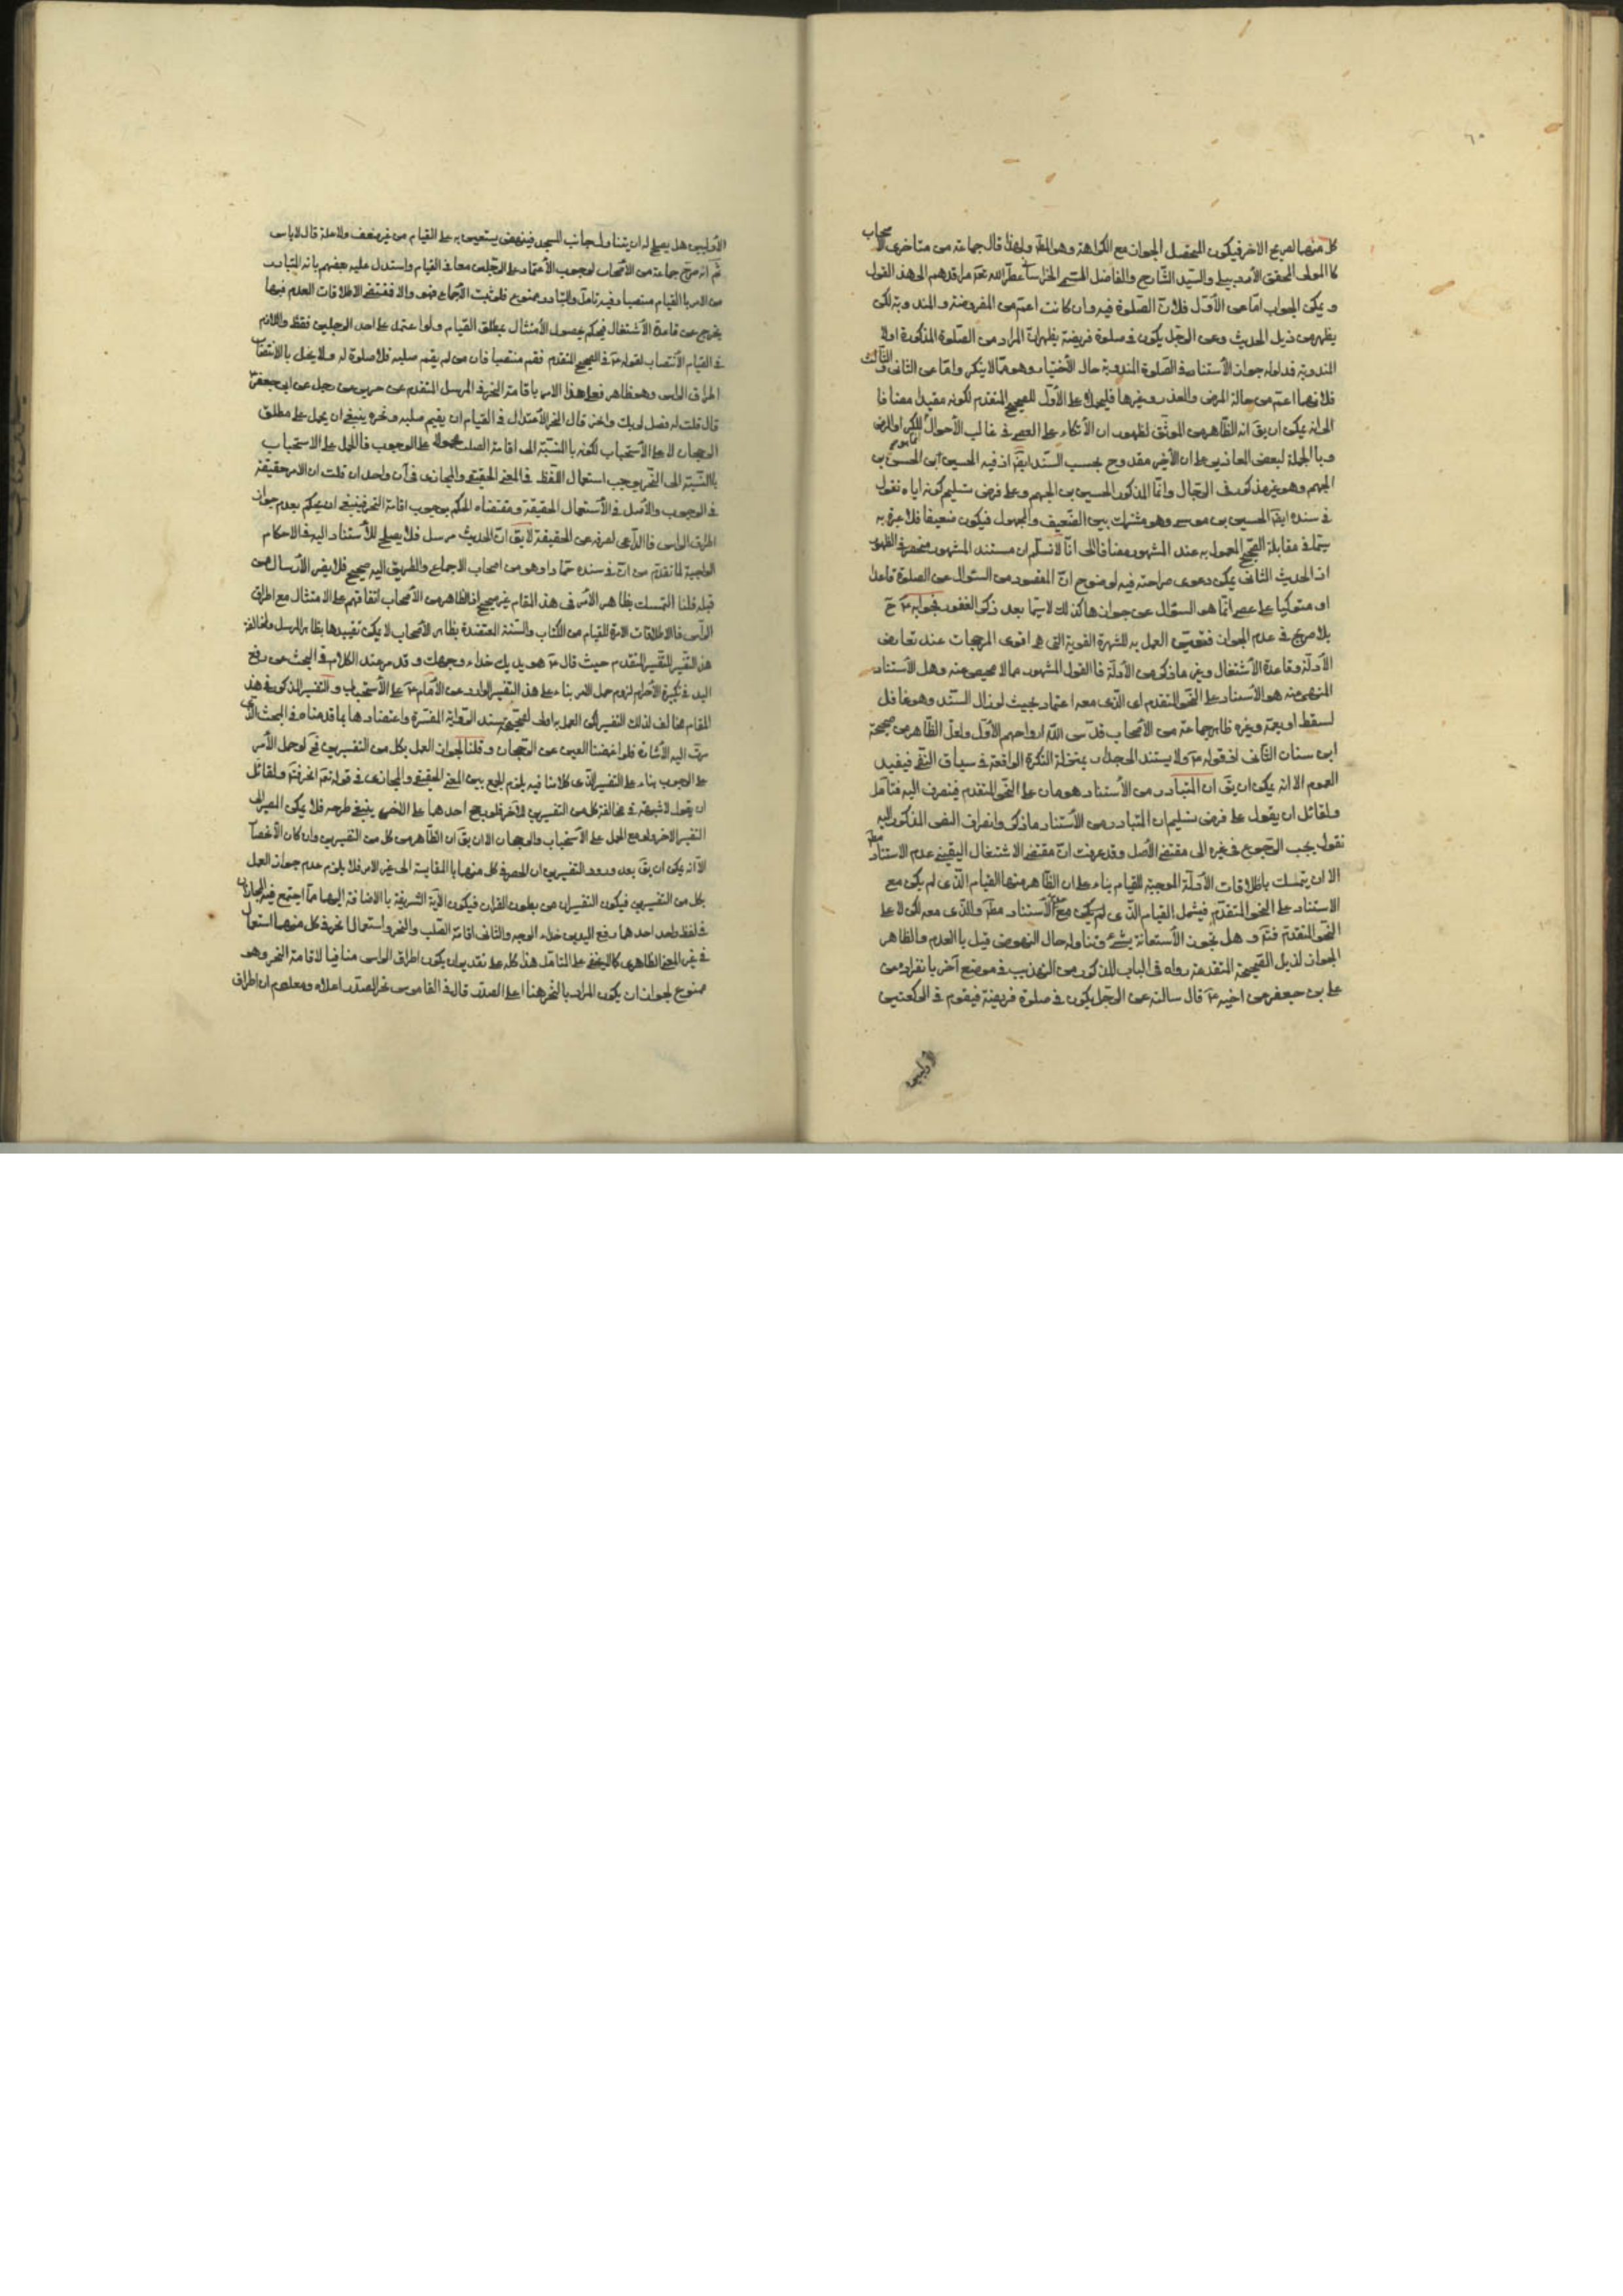 ٦٠
كل منهما لصريح الاخر فيكون المحصل الجواز مع الكراهة وهو المط ولهذا قال جماعة من متاخرى الاصحاب
كالمولى المحقق الأردبيلى والسيد الشارح والفاضل عطر الله مراقدهم الى هذا القول
و يمكن الجواب اما عن الأول فلان الصلوة فيه وان كانت اعم من المفروضة والمندوبة لكن
يظهر من ذيل الحديث وعن الرجل يكون فى صلوة فريضة يظهر ان المراد من الصلوة المذكورة اولا
المندوبة فمدلوله جواز الأستناد فى الصلوة المندوبة حال الأختيار وهو مما لا ينكر واما عن الثانى والثالث
فلانهما اعم من حالة المرض والعذر وغيرها فليحمل على الأول للصحيح المتقدم لكونه مقيدا مضافا
الى انه يمكن ان يق انه الظاهر من الموثق لظهور ان الأتكاء على العصى فى غالب الأحوال للكبر او المرض
و بالجملة لبعض المعاذير على ان الأخير مقدوح بحسب السند ايضا اذ فيه الحسين ابى الحسين بن
الجهم وهو غير مذكور فى الرجال وانما المذكور الحسين بن الجهم وعلى فرض تسليم كونه اياه نقول
فى سنده ايضا الحسين بن موسى وهو مشترك بين الضعيف والمجهول فيكون ضعيفا فلا عبرة به
سيما فى مقابلة الصحيح المعمول به عند المشهور مضافا الى انا لا نسلم ان مستند المشهور منحصر فى الظهور
اذ الحديث الثانى يمكن دعوى صراحته فيه لوضوح ان المقصود من السئوال عن الصلوة قاعدا
او متوكيا على عصى انما هو السئوال عن جوازها كذلك لا سيما بعد ذكر الغفور فجوابه ع ح
بلا صريح فى عدم الجواز فتعين العمل به للشهرة القوية التى هى اقوى المرجحات عند تعارض
الأدلة وقاعدة الأشتغال وغير ما ذكر من الأدلة فالقول المشهور مما لا محيص عنه وهل الأستناد
المنهى عنه هو الأستناد على النحو المتقدم اى الذى معه اعتماد بحيث لو زال السند وهو غافل
لسقط او يعمه وغيره ظاهر جماعة من الأصحاب قدس الله ارواحهم الأول ولعل الظاهر من صحيحة
ابن سنان الثانى لقوله ع ولا يستند الى جدار بمنزلة النكرة الواقعة فى سياق النفى فيفيد
العموم الا انه يمكن ان يق ان المتبادر من الأستناد هو ما كان على النحو المتقدم فينصرف اليه فتامل
ولقائل ان يقول على فرض تسليم ان المتبادر من الأستناد ما ذكر وانصراف النص المذكور اليه
نقول يجب الرجوع فى غيره الى مقتضى الأصل وقد عرفت ان مقتضى الاشتغال اليقينى عدم الاستناد مط
الا ان يتمسك باطلاقات الأدلة الموجبة للقيام بناء على ان الظاهر منها القيام الذى لم يكن مع
الاستناد على النحو المتقدم فيشمل القيام الذى لم يكن معه الأستناد مط والذى معه لكن لا على
النحو المتقدم فتم و هل يجوز الأستعانة بشئ وتناوله حال النهوض قيل بالعدم والظاهر
الجواز لذيل الصحيحة المتقدمة رواه فى الباب المذكور من التهذيب فى موضع آخر بانفراده عن
على بن جعفر عن اخيه ع قال سالته عن الرجل يكون فى صلوة فريضة فيقوم فى الركعتين
الأوليين
الأوليين هل يصلح له ان يتناول جانب المسجد فينهض يستعين به على القيام من غير ضعف ولا علة قال لا باس
ثم انه صرح جماعة من الأصحاب لوجوب الأعتماد على الرجلين معا فى القيام واستدل عليه بعضهم بانه المتبادر
من الامر بالقيام منتصبا وفيه تامل والتبادر ممنوع فلو ثبت الأجماع فهو والا فمقتضى الاطلاقات العدم فبها
يخرج عن قاعدة الأشتغال فيحكم بحصول الأمتثال بمطلق القيام ولو اعتمد على احد الرجلين فقط واللازم
فى القيام الأنتصاب لقوله ع فى الصحيح المتقدم فقم منتصبا فان من لم يقم صلبه فلا صلوة له ولا يخل بالانتصاب
اطراق الراس وهو ظاهر فعلى هذا الامر باقامة النحر فى المرسل المتقدم عن حريز عن رجل عن ابى جعفر ع
قال قلت له فصل لربك وانحر قال النحر الأعتدال فى القيام ان يقيم صلبه ونحره ينبغى ان يحمل على مطلق
الرجحان لا على الأستحباب لكونه بالنسبة الى اقامة الصلب محمولا على الوجوب فالحمل على الاستحباب
بالنسبة الى النحر يوجب استعمال اللفظ فى المعنى الحقيقى والمجازى فى آن واحد ان قلت ان الامر حقيقة
فى الوجوب والأصل فى الأستعمال الحقيقة ومقتضاه الحكم بوجوب اقامة النحر فينبغى ان يحكم بعدم جواز
اطراق الراس فالداعى لصرفه عن الحقيقة لا يق ان الحديث مرسل فلا يصلح للأستناد اليه فى الاحكام
الواجبة لما تقدم من ان فى سنده حماد او هو من اصحاب الاجماع والطريق اليه صحيح فلا يضر الأرسال ممن
قبله قلنا التمسك بظاهر الأمر فى هذا المقام غير صحيح اذ الظاهر من الأصحاب اتفاقهم على الامتثال مع اطراق
الراس فالاطلاقات الامرة للقيام من الكتاب والسنة المعتضدة بظاهر الأصحاب لا يمكن تقييدها بظاهر المرسل ولمخالفة
هذا التفسير للتفسير المتقدم حيث قال ع هو يديك حذاء وجهك و قد مر عند الكلام فى البحث عن رفع
اليد فى تكبيرة الأحرام لزوم حمل الامر بناء على هذا التفسير الوارد عن الأمام ع على الأستحباب والتفسير المذكور فى هذا
المقام مخالف لذلك التفسير لكن العمل به اولى لصحة سند الرواية المفسرة واعتضادها بما قدمناه فى البحث الذى
مرت اليه الأشارة فلو اغمضنا العين عن الرجحان و قلنا لجواز العمل بكل من التفسيرين فح لو حمل الأمر
على الوجوب بناء على التفسير الذى كلامنا فيه يلزم الجمع بين المعنى الحقيقى والمجازى فى قوله تعه انحر فتم ولقائل
ان يقول لا شبهة فى مخالفة كل من التفسيرين للآخر فلو رجح احدهما على الاخر ينبغى طرحه فلا يمكن المصير الى
التفسير الاخر ولو مع الحمل على الاستحباب والرجحان الا ان يق ان الظاهر من كل من التفسيرين وان كان الأنحصار
الا انه يمكن ان يق بعد ورود التفسيرين ان الحصر فى كل منهما بالمقايسة الى غير الاخر فلا يلزم عدم جواز العمل
بكل من التفسيرين فيكون التفسيران من بطون القران فيكون الآية الشريفة بالاضافة اليهما مما اجتمع فيه المجازان
فى لفظ واحد احدهما رفع اليدين حذاء الوجه والثانى اقامة الصلب والنحر واستعمال انحر فى كل منهما استعمال
فى غير المعنى الظاهرى كما لا يخفى على المتامل هذا كله على تقدير ان يكون اطراق الراس منافيا لاقامة النحر وهو
ممنوع لجواز ان يكون المراد بالنحر هنا اعلى الصدر قال فى القاموس نحر الصدر اعلاه ومعلوم ان اطراق